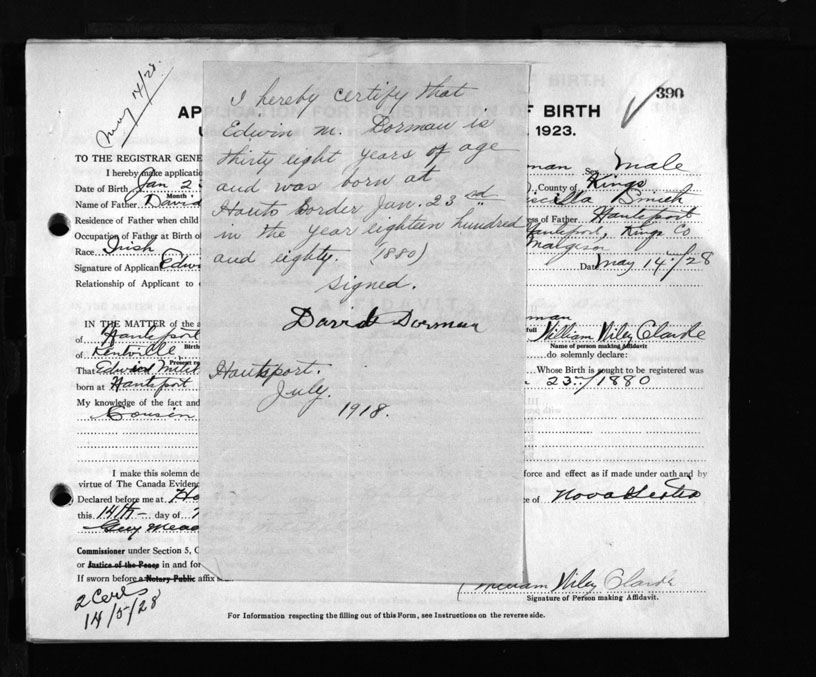 May 14/28.
390
AP
F BIRTH
1923.
I hereby certify that
Edwin M. Dorman is
thirty eight years of age
and was born at
Hants Border Jan. 23rd
in the year eighteen hundred
and eighty. (1880)
Signed.
David Dorman
Hantsport.
July.
1918.
TO THE REGISTRAR GENE
I hereby make applicatio
man Sex Male
Date of Birth Jan 23
Month
County of Kings
Name of Father David
Smith
Residence of Father when child
ess of Father Hantsport
Occupation of Father at Birth of
Hantsport, Kings Co
Race Irish
Margeson
Signature of Applicant Edwi
Date May 14th/28
Relationship of Applicant to
IN THE MATTER of the a
man
of Hantsport
full William Wiley Clarke
Birth
Name of person making Affidavit
of Kentville
do solemnly declare:
Present
That Edwin
Whose Birth is sought to be registered was
born at Hantsport
23rd/1880
My knowledge of the fact and
Cousin
I make this solemn de
force and effect as if made under oath and by
virtue of The Canada Evidenc
Declared before me at Ha
ce of Nova Scotia
this 14th day of
Guy
Commissioner under Section 5, C
or Justice of the Peace in and for
If sworn before a Notary Public affix
William Wiley Clarke
Signature of Person making Affidavit.
2 Certs
14/5/28
For Information respecting the filling out of this Form, see Instructions on the reverse side.